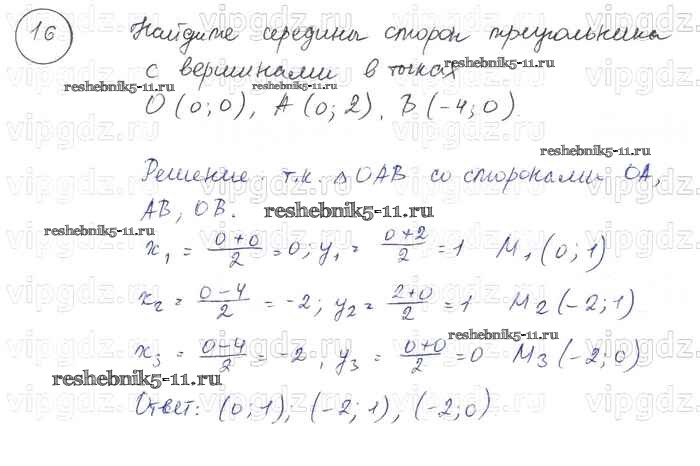 16 Найдите середины сторон треугольника
с вершинами в точках
reshebnik5-11.ru reshebnik5-11.ru
O (0; 0), A (0; 2), B (-4; 0)
reshebnik5-11.ru
Решение: т.к. △ OAB со сторонами OA,
AB, OB. reshebnik5-11.ru
reshebnik5-11.ru
x₁ = (0+0)/2 = 0; y₁ = (0+2)/2 = 1 M₁ (0; 1)
x₂ = (0-4)/2 = -2; y₂ = (2+0)/2 = 1 M₂ (-2; 1)
reshebnik5-11.ru
x₃ = (0-4)/2 = -2, y₃ = (0+0)/2 = 0 M₃ (-2; 0)
reshebnik5-11.ru
Ответ: (0; 1); (-2; 1), (-2; 0)
vipgdz.ru